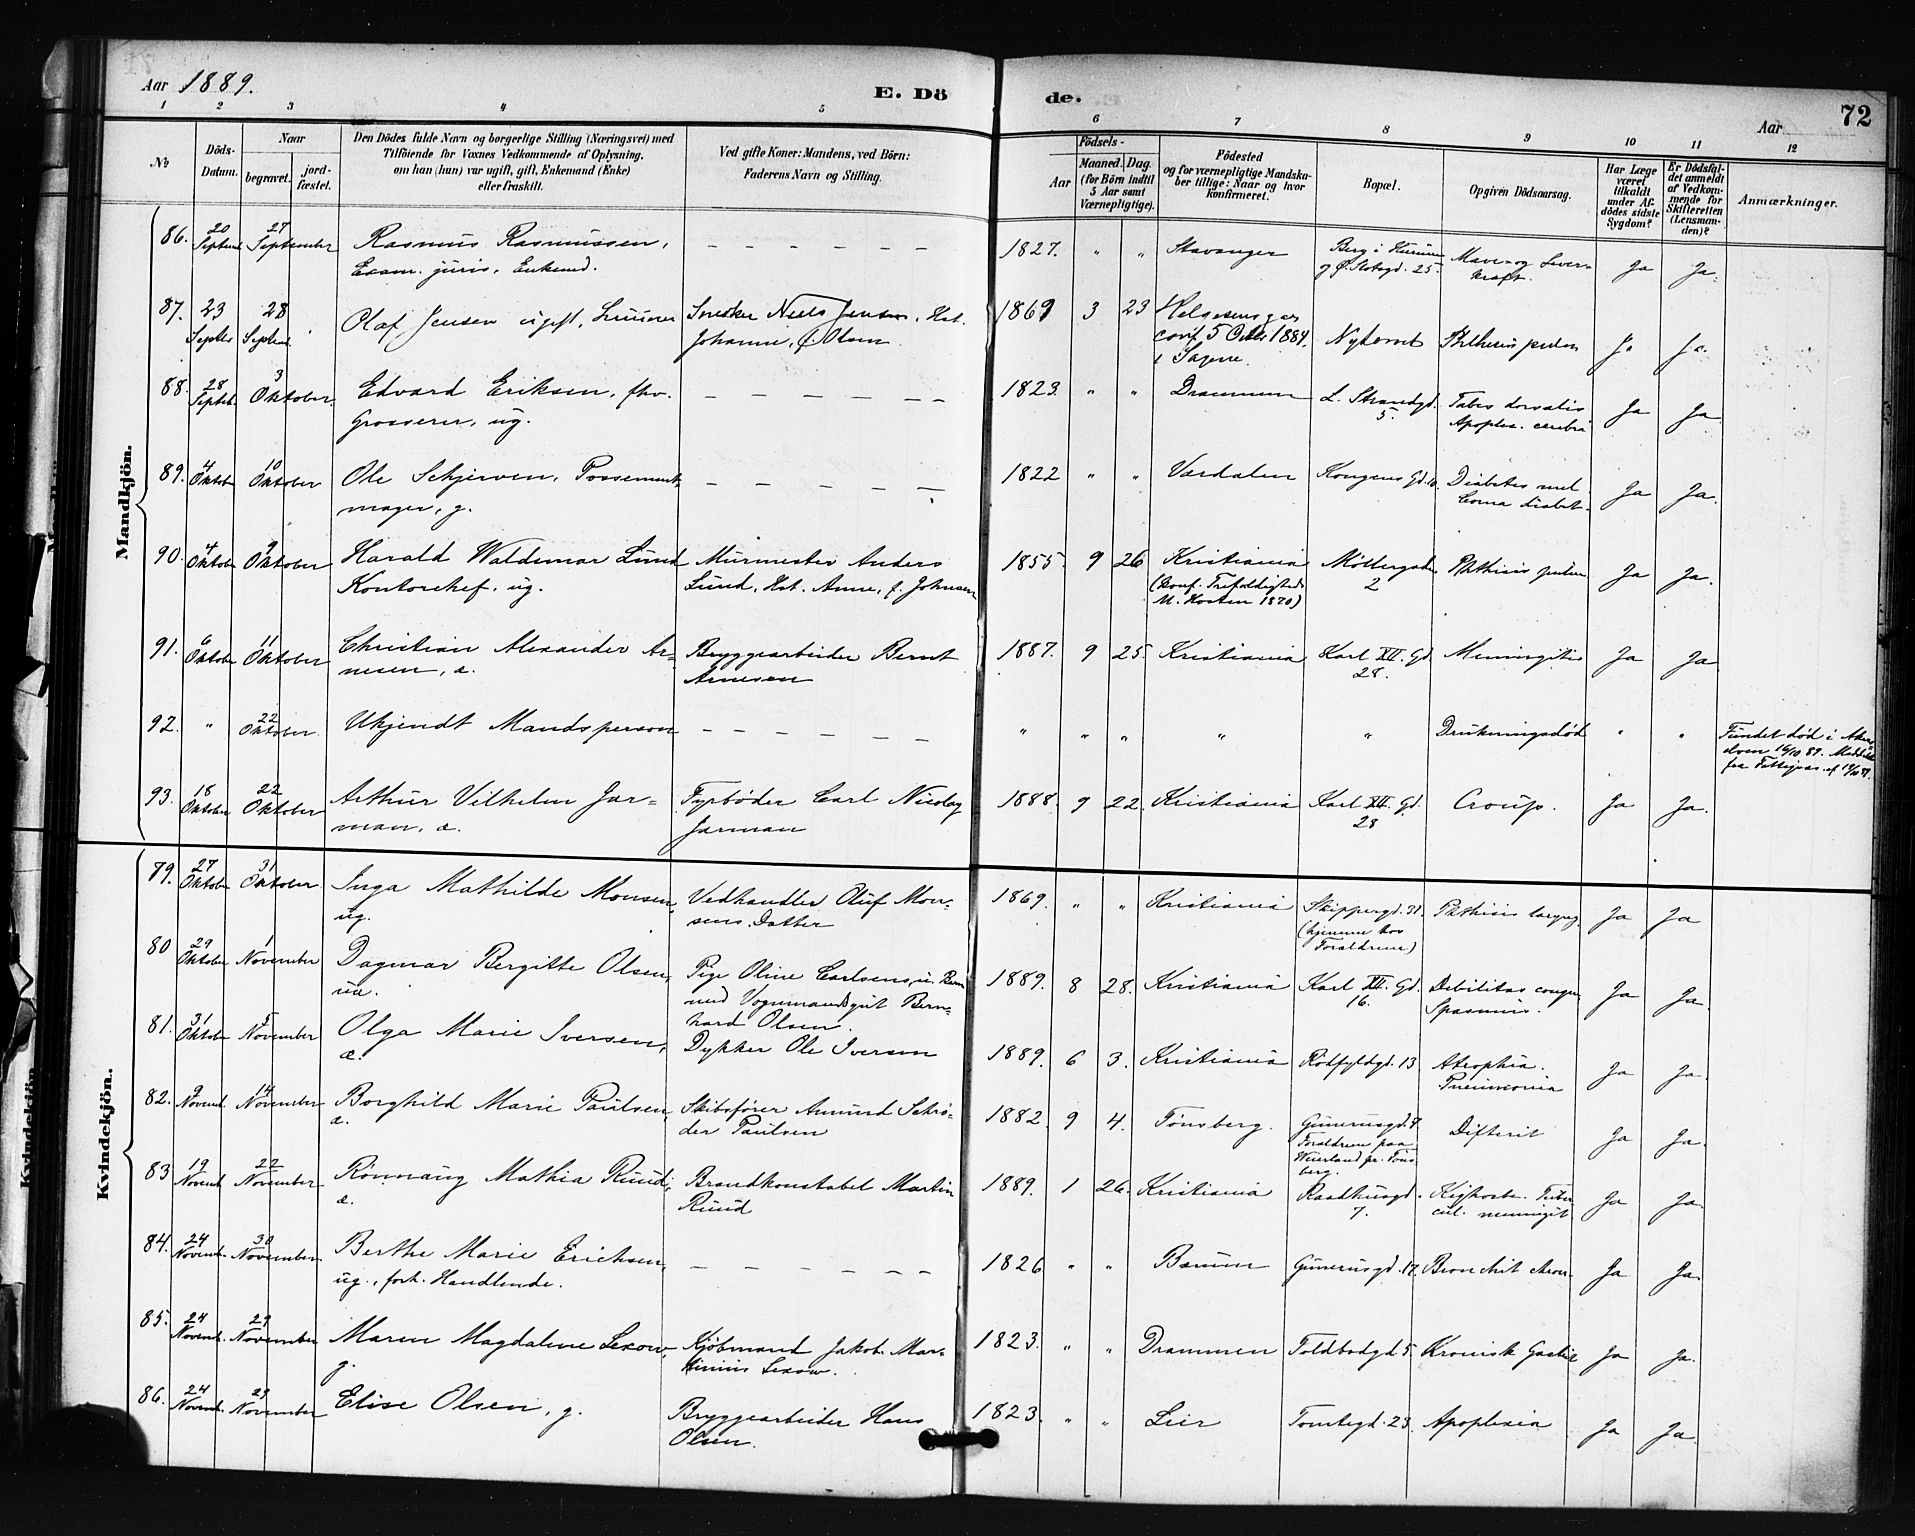 Aar 1889.
E. Dö
de.
72
Aar
1 2 3 4 5 6 7 8 9 10 11 12
No
Döds-Datum.
Naar
begravet.
jord-fæstet.
Den Dödes fulde Navn og borgerlige Stilling (Næringsvei) med
Tilföiende for Voxnes Vedkommende af Oplysning,
om han (hun) var ugift, gift, Enkemand (Enke)
eller fraskilt.
Ved gifte Koner: Mandens, ved Börn:
Faderens Navn og Stilling.
Födsels-
Aar
Maaned. Dag.
(for Börn indtil
5 Aar samt
Værnepligtige).
Födested
og for værnepligtige Mandska-
ber tillige: Naar og hvor
konfirmeret.
Bopæl.
Opgiven Dödsaarsag.
Har Læge
været
tilkaldt
under Af-
dödes sidste
Sygdom?
Er Dödsfal-
det anmeldt
af Vedkom-
mende for
Skifteretten
(Lensman-
den)?
Anmærkninger.
Mandkjön.
86. 20 Septemb 27 September Rasmus Rasmussen, — — — — — — 1827. " " Stavanger Berg i Mave- og Lever- Ja Ja.
Exam. juris, Enkemd. 25. kræft.
87. 23 Septbr 28 Septemb. Olaf Jensen ugift, Snedker Niels Jensen, Hst. 1869 3 23 Helgesensgae Nytorvet Phthisis pulm Ja Ja.
Johanne, f. Olsen conf. 5 Oktbr 1884.
i Sagene.
88. 28 Septbr. 3 Oktober. Edvard Eriksen, fhv. — — — — — — 1823. " " Drammen L. Strandgd. Tabes dorsalis Ja Ja
Grosserer, ug. 5. Apoplex. cerebri
89. 4 Oktober 10 Oktober Ole Schjerven, Possement- — — — — — 1822 " " Værdalen Kongens Gd. 10. Diabetes mel. Ja Ja.
mager, g. Coma diabet.
90. 4 Oktober 9 Oktober Harald Waldemar Lund Murmester Anders 1855. 9 26 Kristiania Möllergaden Phthisis pulm Ja Ja.
Kontorchef, ug. Lund, Hst. Anne, f. Johnsen (Conf. Trefoldigheds 2
M. Hosten 1870)
91. 6 Oktober 11 Oktober Christian Alexander Ar- Bryggearbeider Bernt 1887. 9 25. Kristiania Karl XII. Gd Meningitis Ja Ja
nesen, æ. Arnesen 28.
92. " 22 Oktober. Ukjendt Mandsperson — — — — — — " " " " " Drukningsdød " " Fundet død i Akers-
elven 16/10 89.
fra Fattigvæs. af
93. 18 Oktober 22 Oktober Arthur Vilhelm Jar- Fyrbøder Carl Nicolay 1888. 9 22. Kristiania Karl XII. Gd. Croup. Ja Ja.
man, æ. Jarman 28
Kvindekjön.
79. 27 Oktober 31 Oktober Inga Mathilde Monsen, Vedhandler Oluf Mon- 1869. " " Kristiania Skippergd. 31. Phthisis laryng. Ja Ja
ug. sens Datter (hjemme hos
Forældrene)
80 29 Oktober 1 November Dagmar Bergitte Olsen, Pige Oline Carlsens, u. Barn 1889. 8 28. Kristiania Karl XII. Gd. Debilitas congen Ja Ja.
uæ. med Vognmandsgut Bern- 16. Spasmus.
hard Olsen.
81. 31 Oktober 5 November Olga Marie Iversen, Dykker Ole Iversen 1889. 6 3. Kristiania Rödfyldgd. 13 Atrophia. Ja Ja.
æ. Pneumonia
82. 9 Novemb. 14 November Borghild Marie Paulsen, Skibsfører Amund Schrö- 1882. 9 4. Tönsberg. Gunerusgd. Difterit Ja Ja.
æ. der Paulsen Forældrene paa
pr. Töns
berg.
83 19 Novemb 22 November Rönnaug Mathia Ruud, Brandkonstabel Martin 1889. 1 26. Kristiania Raadhusgd. Kighoste. Tuber- Ja Ja.
æ. Ruud 7. cul. meningit
84. 24 Novemb. 30 November. Berthe Marie Erichsen, — — — — — — 1826 " " Bærum Gunerusgd. 17. Bronchit kron. Ja Ja.
ug., forh. Handlende.
85. 24 Novemb. 29 November Maren Magdalene Lexow, Kjöbmand Jakob Mar- 1823. " " Drammen Toldbodgd. 5. Kronisk Gastrit Ja Ja.
g. tinius Lexow.
86. 24 Novemb. 29 November Elise Olsen, g. Bryggearbeider Hans 1823. " " Lier Tomtegd. 23. Apoplexia Ja Ja.
Olsen.